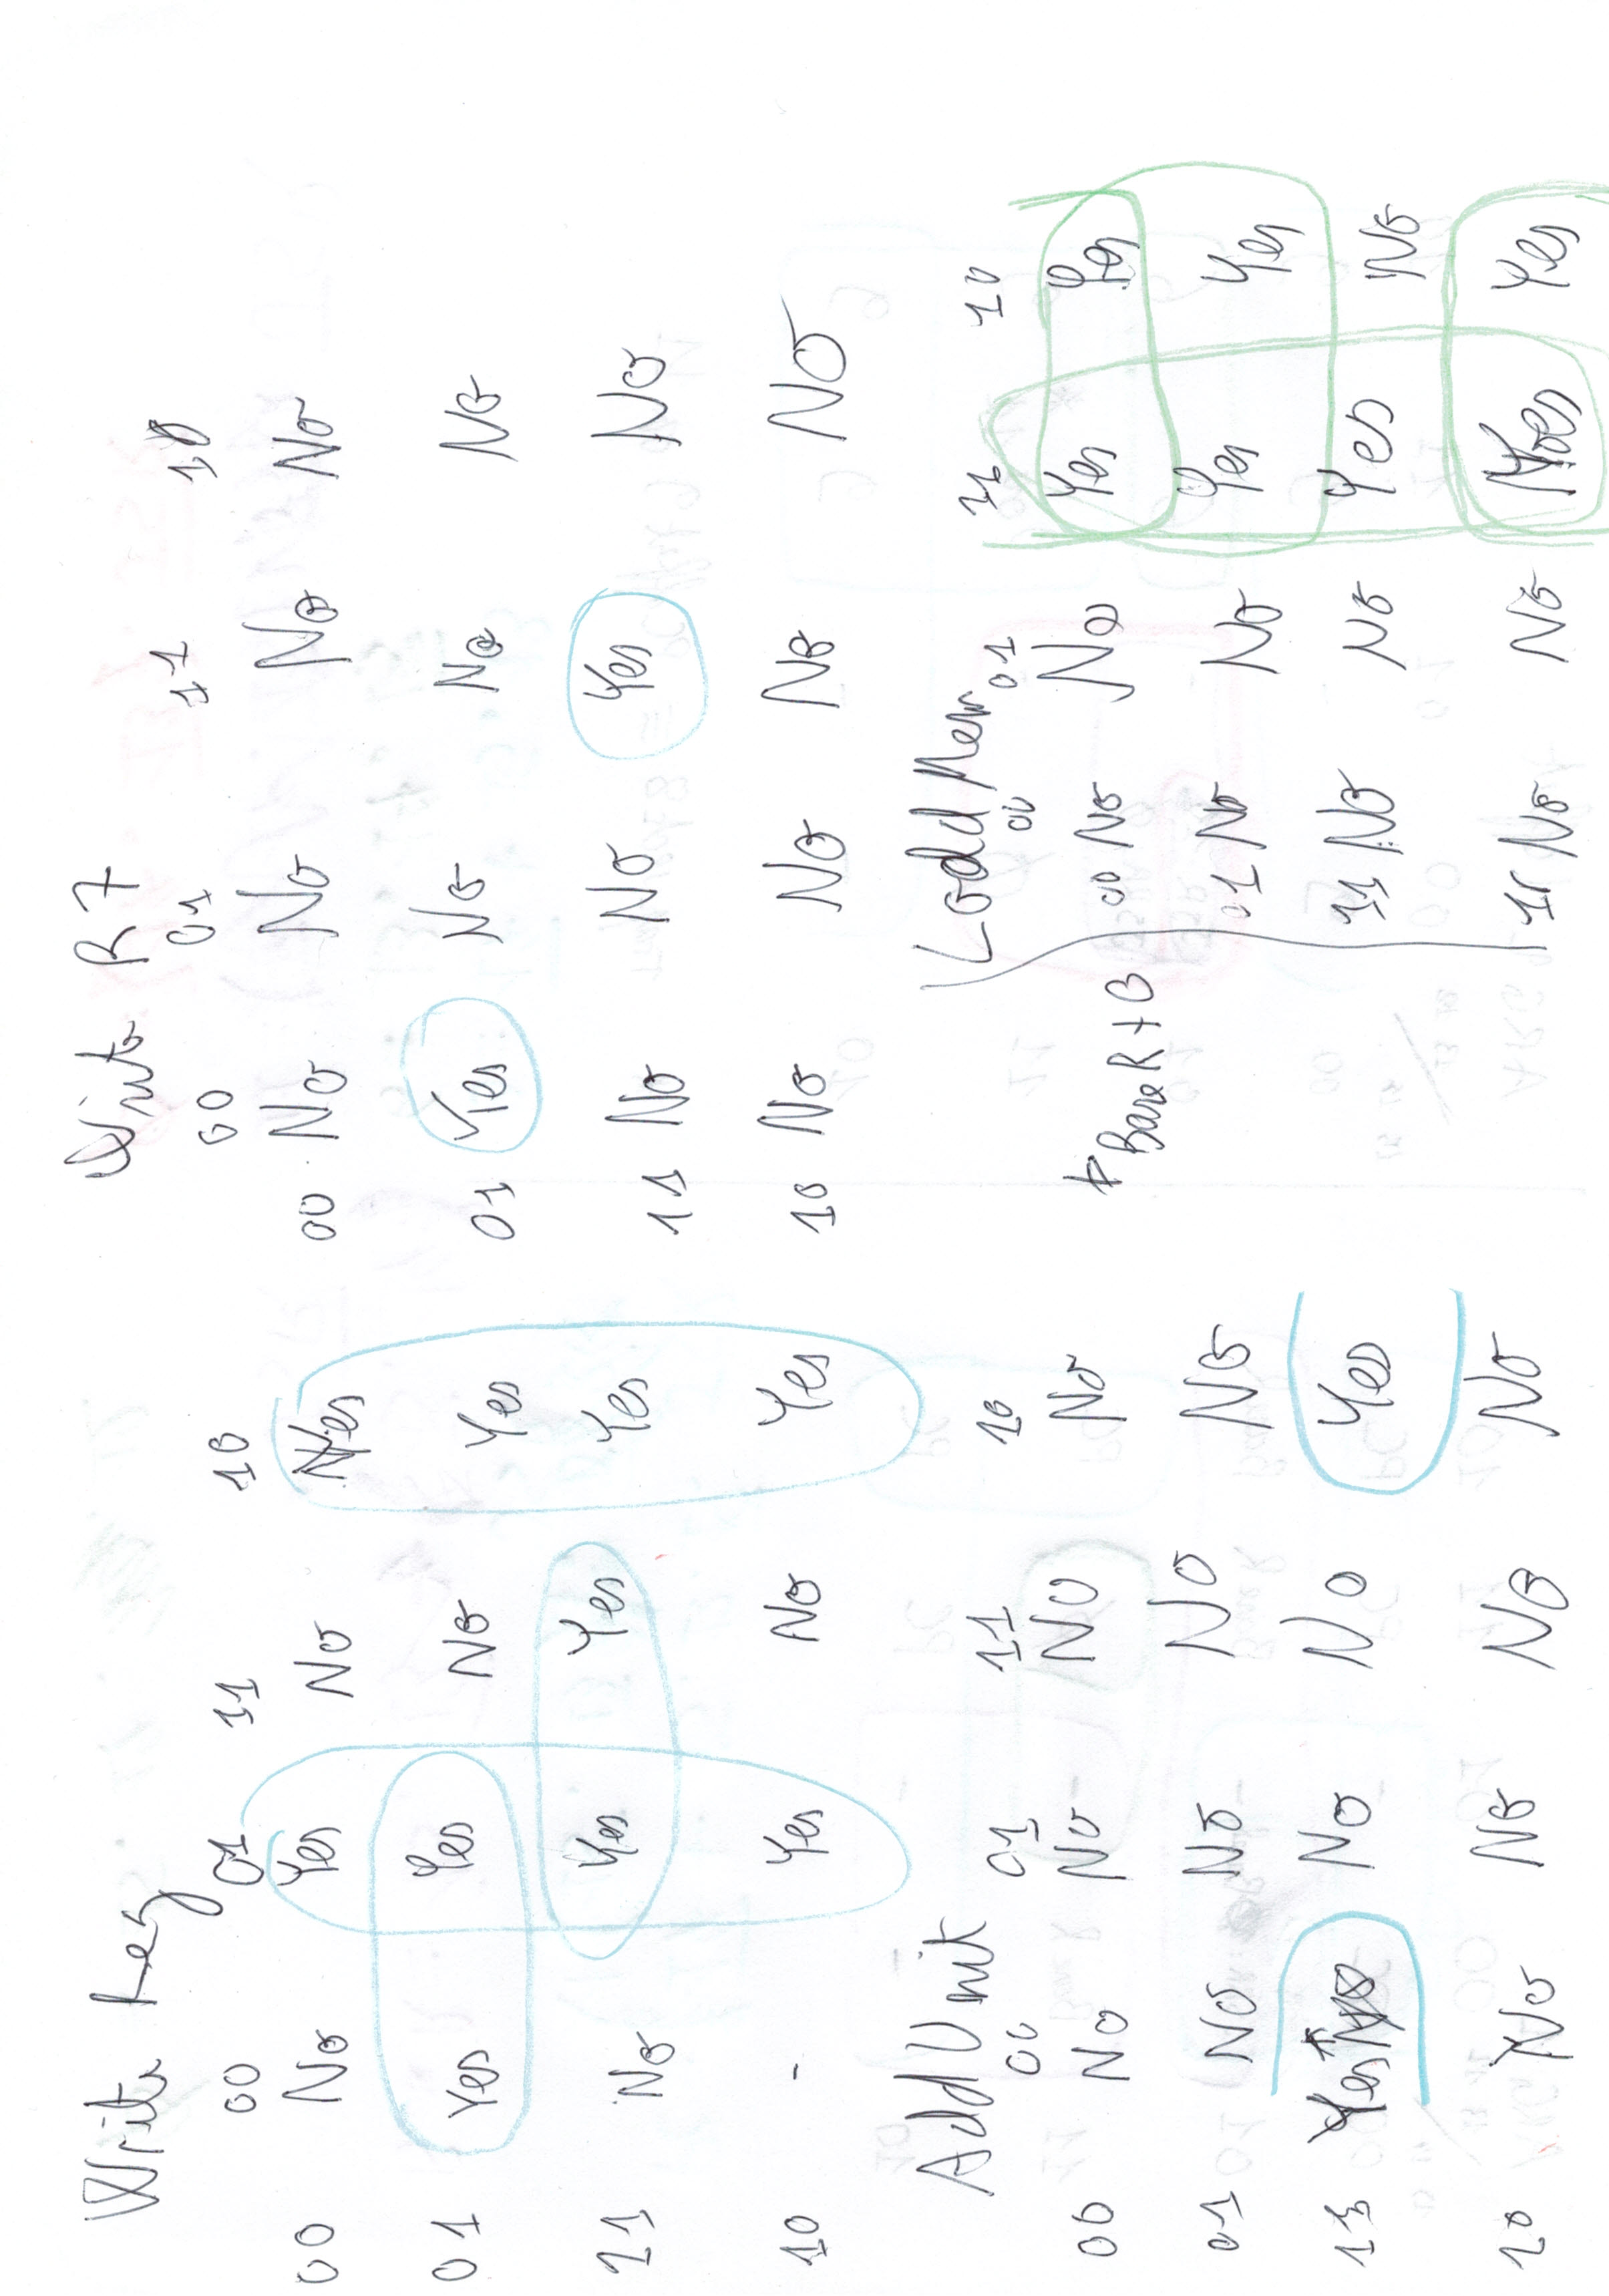 Write Reg
00 01 11 10
00 No Yes No Yes
01 Yes Yes No Yes
11 No Yes Yes Yes
10 - Yes No Yes
Write R7
00 01 11 10
00 No No No No
01 Yes No No No
11 No No Yes No
10 No No No No
Add Unit
00 01 11 10
00 No No No No
01 No No No No
11 Yes No No Yes
10 No No No No
* BaseR + 0
Load Mem
00 01 11 10
00 No No Yes Yes
01 No No Yes Yes
11 No No Yes No
10 No No Yes Yes